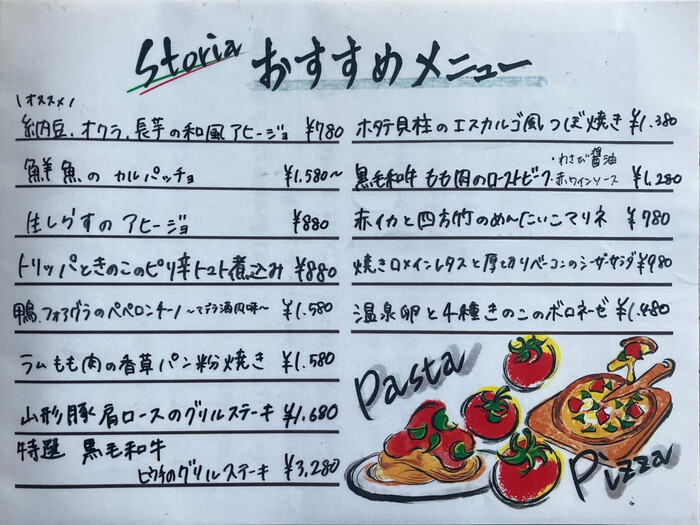 Storia おすすめメニュー
\オススメ/
納豆、オクラ、長芋の和風アヒージョ ¥780
鮮魚の カルパッチョ ¥1.580～
生しらすの アヒージョ ¥880
トリッパときのこのピリ辛トマト煮込み ¥880
鴨、フォアグラのペペロンチーノ ～マデラ酒風味～ ¥1.580
ラムもも肉の香草パン粉焼き ¥1.580
山形豚 肩ロースのグリルステーキ ¥1.680
特選 黒毛和牛
ヒウチのグリルステーキ ¥3,280
ホタテ貝柱のエスカルゴ風つぼ焼き ¥1.380
・わさび醤油
黒毛和牛 もも肉のローストビーフ ・赤ワインソース ¥1,280
赤イカと四方竹のめんたいこマリネ ¥980
焼きロメインレタスと厚切りベーコンのシーザーサラダ ¥980
温泉卵と4種きのこのボロネーゼ ¥1.480
Pasta
Pizza